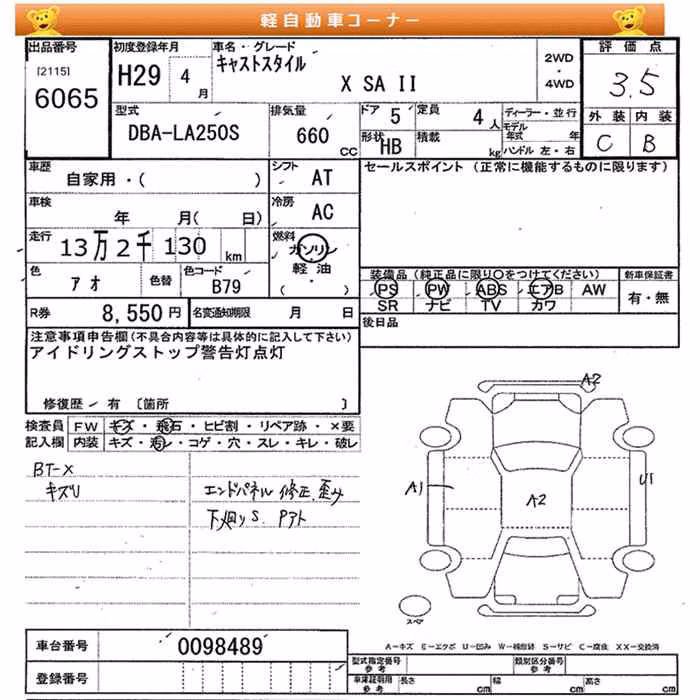 軽自動車コーナー
出品番号
[2115]
6065
初度登録年月
H29 4 月
車名・グレード
キャストスタイル
X SA II
2WD
・
4WD
評価点
3.5
外装 内装
C B
型式
DBA-LA250S
排気量
660 CC
ドア 5
定員 4 人
形状 HB
積載 kg
ディーラー・並行
モデル年式 年
ハンドル 左・右
車歴
自家用・( )
シフト AT
セールスポイント (正常に機能するものに限ります)
車検
年 月( 日)
冷房 AC
走行
13万2千130 km
燃料
ガソリン
軽油
( ・ )
色
アオ
色替
色コード
B79
装備品 (純正品に限り○をつけてください)
PS PW ABS エアB AW
SR ナビ TV カワ
新車保証書
有・無
R券
8,550 円
名変通知期限 月 日
後日品
注意事項申告欄 (不具合内容等は具体的に記入して下さい)
アイドリングストップ警告灯点灯
修復歴 ・ 有 〔箇所 〕
検査員記入欄
FW キズ・飛石・ヒビ割・リペア跡・×要
内装 キズ・汚レ・コゲ・穴・スレ・キレ・破レ
BT-X
キズU
エンドパネル 修正、歪み
下廻りS. Pアト
A2
A1
A2
U1
スペア
A−キズ E−エクボ U−凹み W−補修跡 S−サビ C−腐食 XX−交換済
車台番号
0098489
登録番号
型式指定番号
参考
類別区分番号
参考
車庫証明用
参考
長さ cm
幅 cm
高さ cm